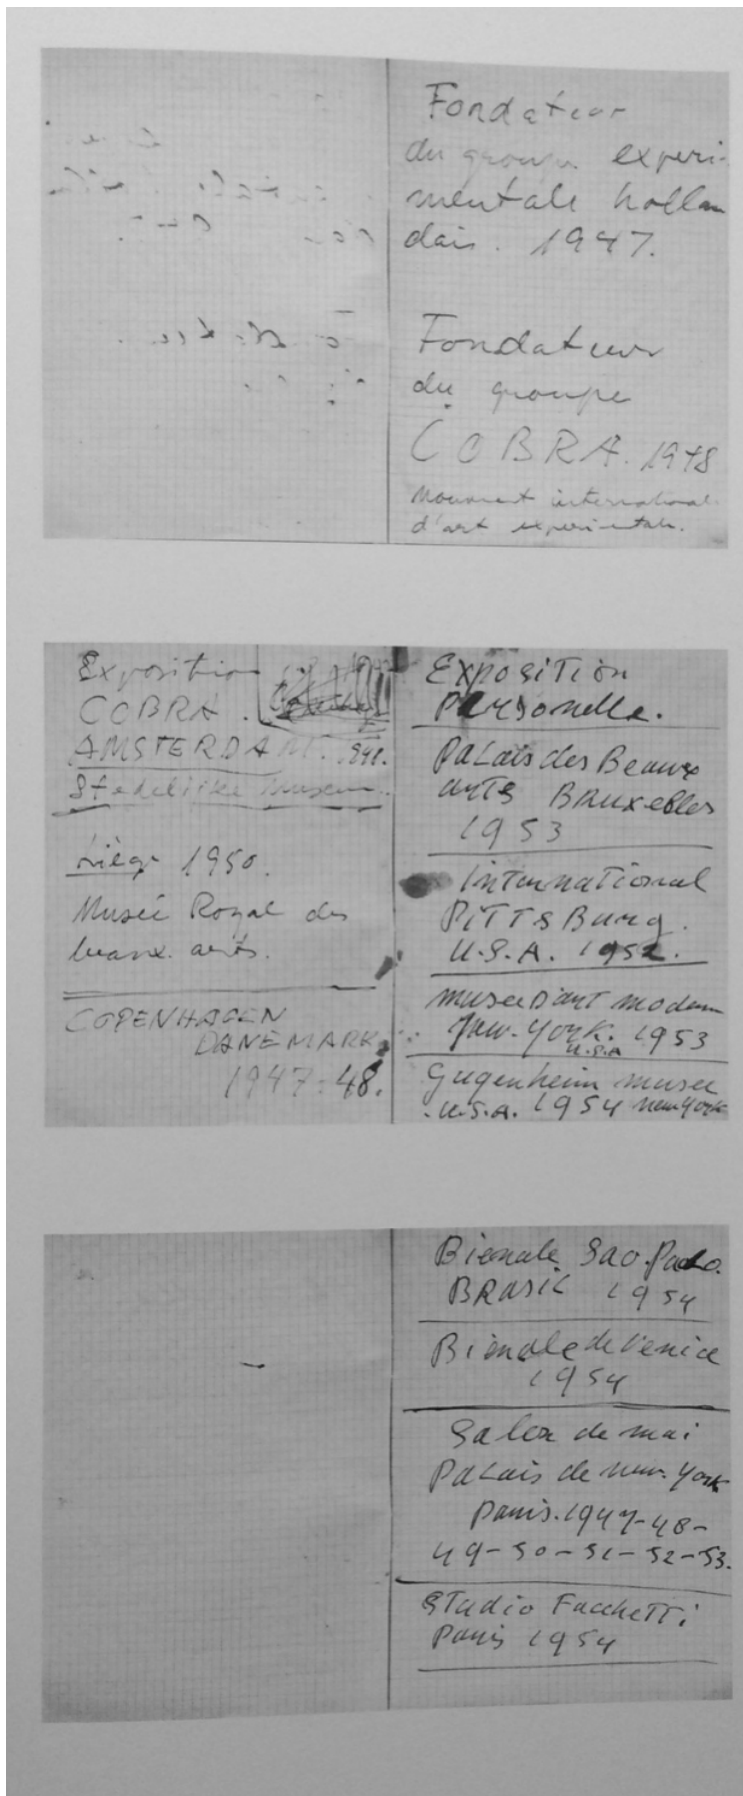 Fondateur
du groupe experi-
mentale hollan
dais. 1947.
Fondateur
du groupe
COBRA. 1948
Mouvment international
d'art experimentale.
Exposition
COBRA.
AMSTERDAM.
Stedelijke Museum.
Liège 1950.
Musée Royal des
beaux. arts.
COPENHAGEN
DANEMARK
1947-48.
Exposition
Personelle.
Palais des Beaux
arts Bruxelles
1953
International
PiTTSBurg.
U.S.A. 1952.
musee D'art modern
New-York. 1953
U.S.A
Gugenheim musee
U.S.A. 1954 New York
Bienale Sao.Paolo.
BRASIL 1954
Bienale de Venice
1954
Salon de mai
Palais de New-York
Paris.1947-48-
49-50-51-52-53.
STudio FaccheTTi
Paris 1954